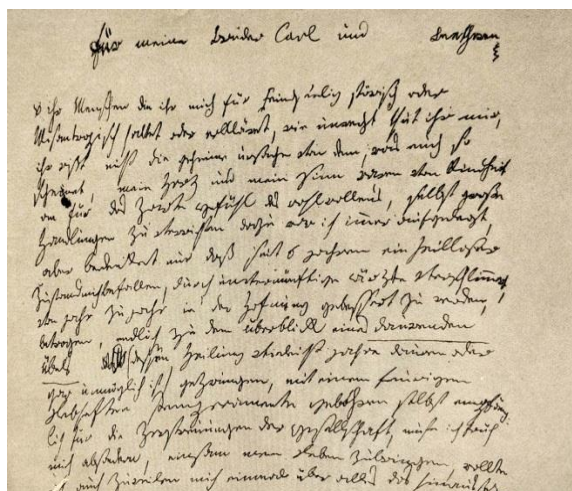 für meine brüder Carl und Beethoven
o ihr Menschen die ihr mich für feindseelig störisch oder
Misantropisch haltet oder erkläret, wie unrecht thut ihr mir,
ihr wißt nicht die geheime ursache von dem, was euch so
scheinet, mein Herz und mein Sinn waren von Kindheit
an für das Zarte gefühl des wohlwollens, selbst große
Handlungen zu verrichten dazu war ich immer aufgelegt,
aber bedenket nur daß seit 6 jahren ein heilloser
Zustand mich befallen, durch unvernünftige ärzte verschlimmert,
von jahr zu jahr in der Hofnung gebessert zu werden,
betrogen, endlich zu dem überblick eines daurenden
Übels dessen Heilung vieleicht jahre dauren oder
gar unmöglich ist, gezwungen, mit einem feurigen
Lebhaften Temperamente gebohren selbst empfäng-
lich für die Zerstreuungen der gesellschaft, muste ich früh
mich absondern, einsam mein Leben zubringen, wollte
ich auch zuweilen mich einmal über alles das hinaussezen